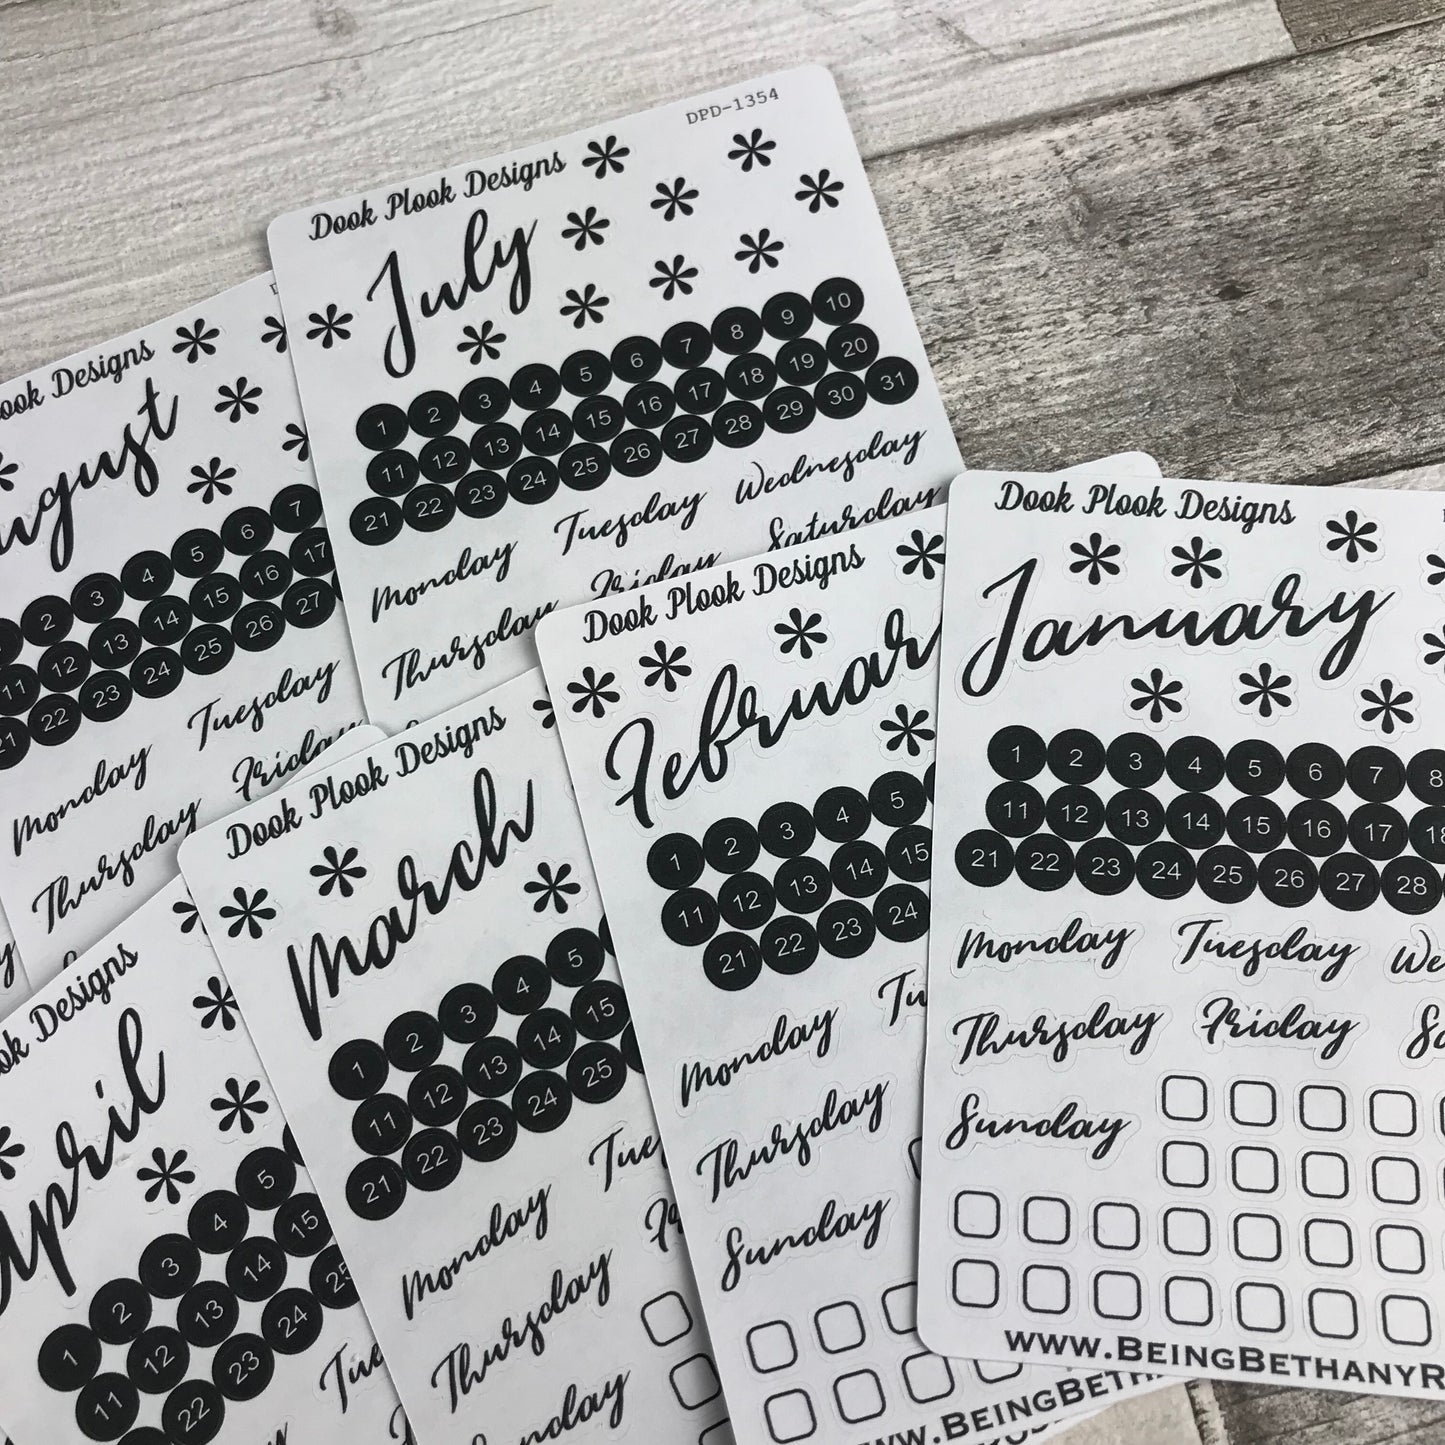 DPD-1354
Dook Plook Designs
July
1 2 3 4 5 6 7 8 9 10
11 12 13 14 15 16 17 18 19 20
21 22 23 24 25 26 27 28 29 30 31
Monday Tuesday Wednesday
Thursday Friday Saturday
Designs
2 3 4 5 6 7
11 12 13 14 15 16 17
21 22 23 24 25 26 27
Monday Tuesday
Thursday Friday
Dook Plook Designs
January
1 2 3 4 5 6 7 8
11 12 13 14 15 16 17 18
21 22 23 24 25 26 27 28
Monday Tuesday We
Thursday Friday Sa
Sunday
www.BeingBethanyR
Dook Plook Designs
Februar
1 2 3 4 5
11 12 13 14 15
21 22 23 24
Monday Tu
Thursday
Sunday
ww.BeingBeth
Dook Plook Designs
March
1 2 3 4 5
11 12 13 14 15
21 22 23 24 25
Monday Tue
Thursday Fr
Sunday
ok Designs
April
1 2 3 4 5
11 12 13 14 15
22 23 24 25
Tue